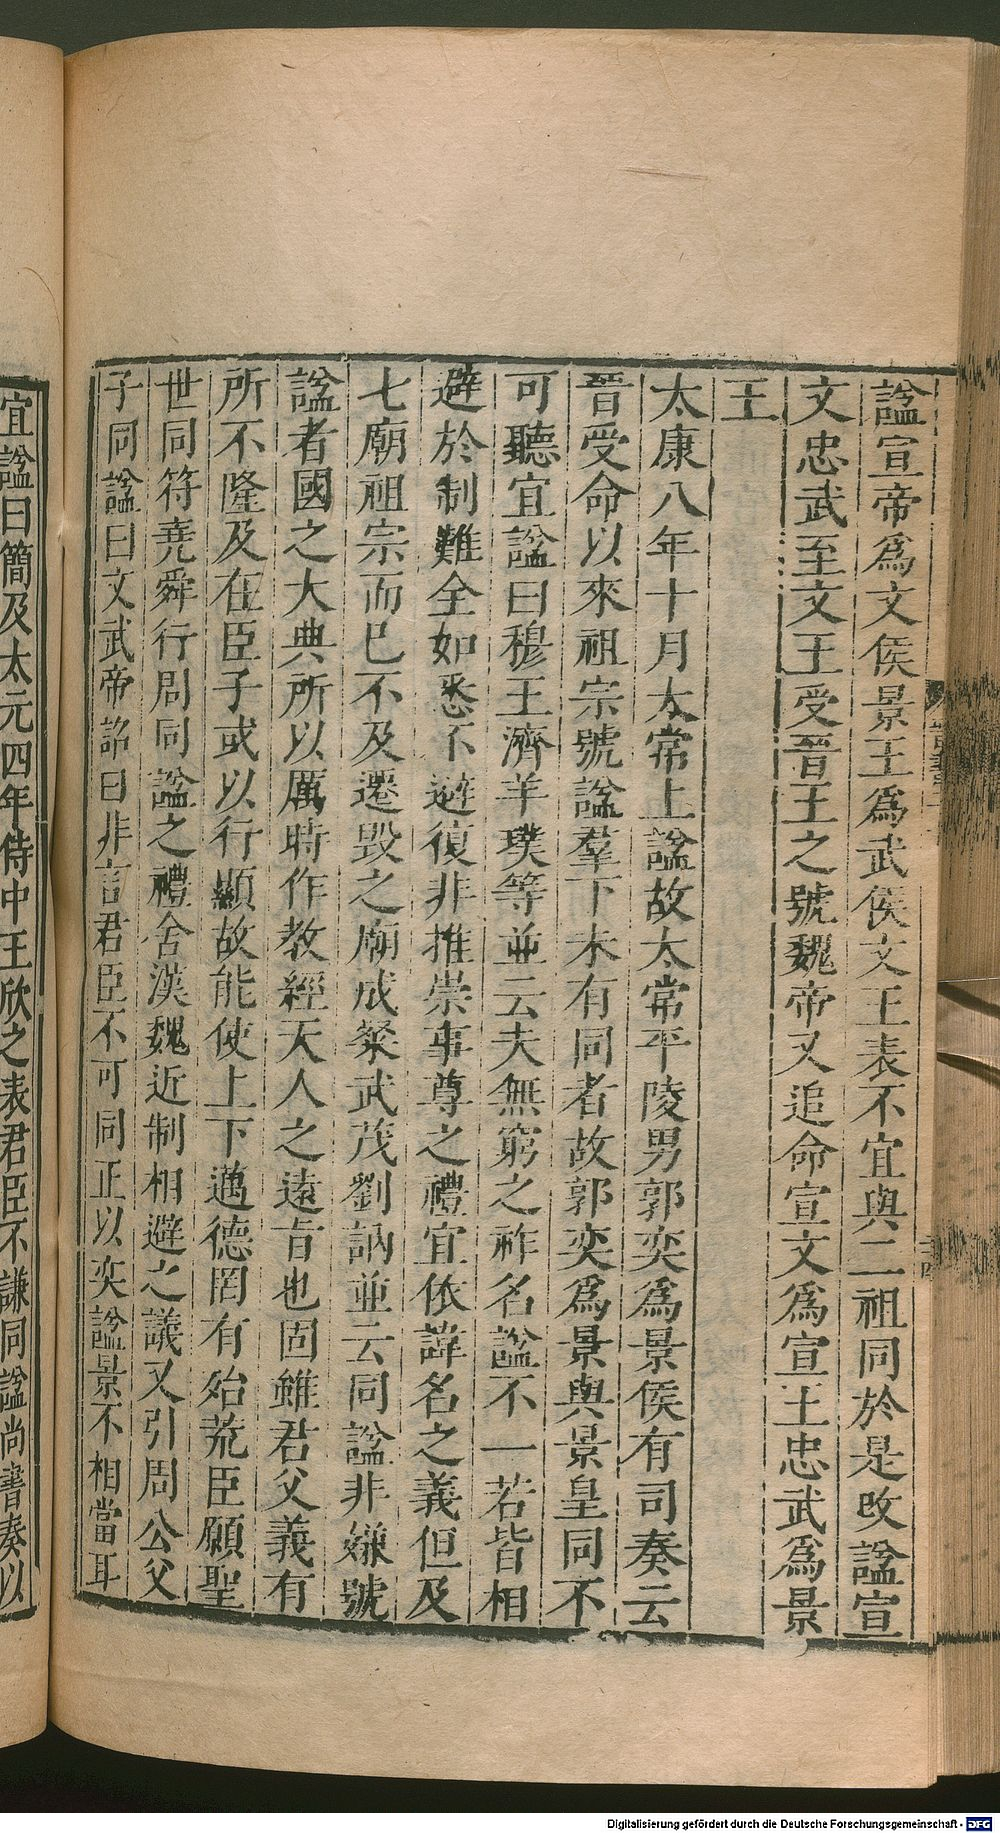 諡宣帝爲文侯景王爲武侯文王表不宜與二祖同於是改諡宣
文忠武至文王受晉王之號魏帝又追命宣文爲宣王忠武爲景
王
太康八年十月太常上諡故太常平陵男郭奕爲景侯有司奏云
晉受命以來祖宗號諡羣下未有同者故郭奕爲景與景皇同不
可聽宜諡曰穆王濟羊璞等並云夫無窮之祚名諡不一若皆相
避於制難全如悉不避復非推崇事尊之禮宜依諱名之義但及
七廟祖宗而已不及遷毀之廟成粲武茂劉訥並云同諡非嫌號
諡者國之大典所以厲時作教經天人之遠旨也固雖君父義有
所不隆及在臣子或以行顯故能使上下邁德罔有怠荒臣願聖
世同符堯舜行周同諡之禮舍漢魏近制相避之議又引周公父
子同諡曰文武帝詔曰非言君臣不可同正以奕諡景不相當耳
宜諡曰簡及太元四年侍中王欣之表君臣不嫌同諡尚書奏以
Digitalisierung gefördert durch die Deutsche Forschungsgemeinschaft - DFG